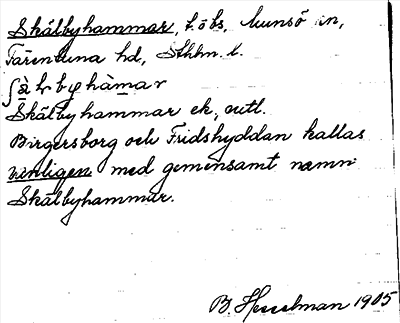 Skälbyhammar, t. o bs, Munsö sn,
Färentuna hd, Sthlm. l.
Skälbyhammar ek, outl.
Birgersborg och Fridshyddan kallas
vanligen med gemensamt namn
Skälbyhammar.
B. Hesselman 1905